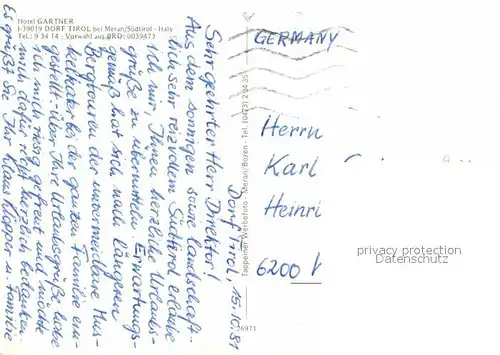 Hotel GARTNER
I-39019 DORF TIROL bei Meran/Südtirol - Italy
Tel.: 9 34 14 - Vorwahl aus BRD: 0039473
Dorf Tirol, 15.10.81
Sehr geehrter Herr Direktor!
Aus dem sonnigen sowie landschaft-
lich sehr reizvollem Südtirol erlaube
ich mir, Ihnen herzliche Urlaubs-
grüße zu übermitteln. Erwartungs-
gemäß hat sich nach längeren
Bergtouren der unvermeidbare Mus-
kelkater bei der ganzen Familie ein-
gestellt. Über Ihre Urlaubsgrüße habe
ich mich riesig gefreut und möchte
mich dafür recht herzlich bedanken.
Es grüßt Sie Ihr Klaus Klopper u. Familie
Tappeiner Werbefoto - Meran/Bozen - Tel. (0473) 2 94 35
26971
GERMANY
Herrn
Karl
Heinri
6200
privacy protection
Datenschutz